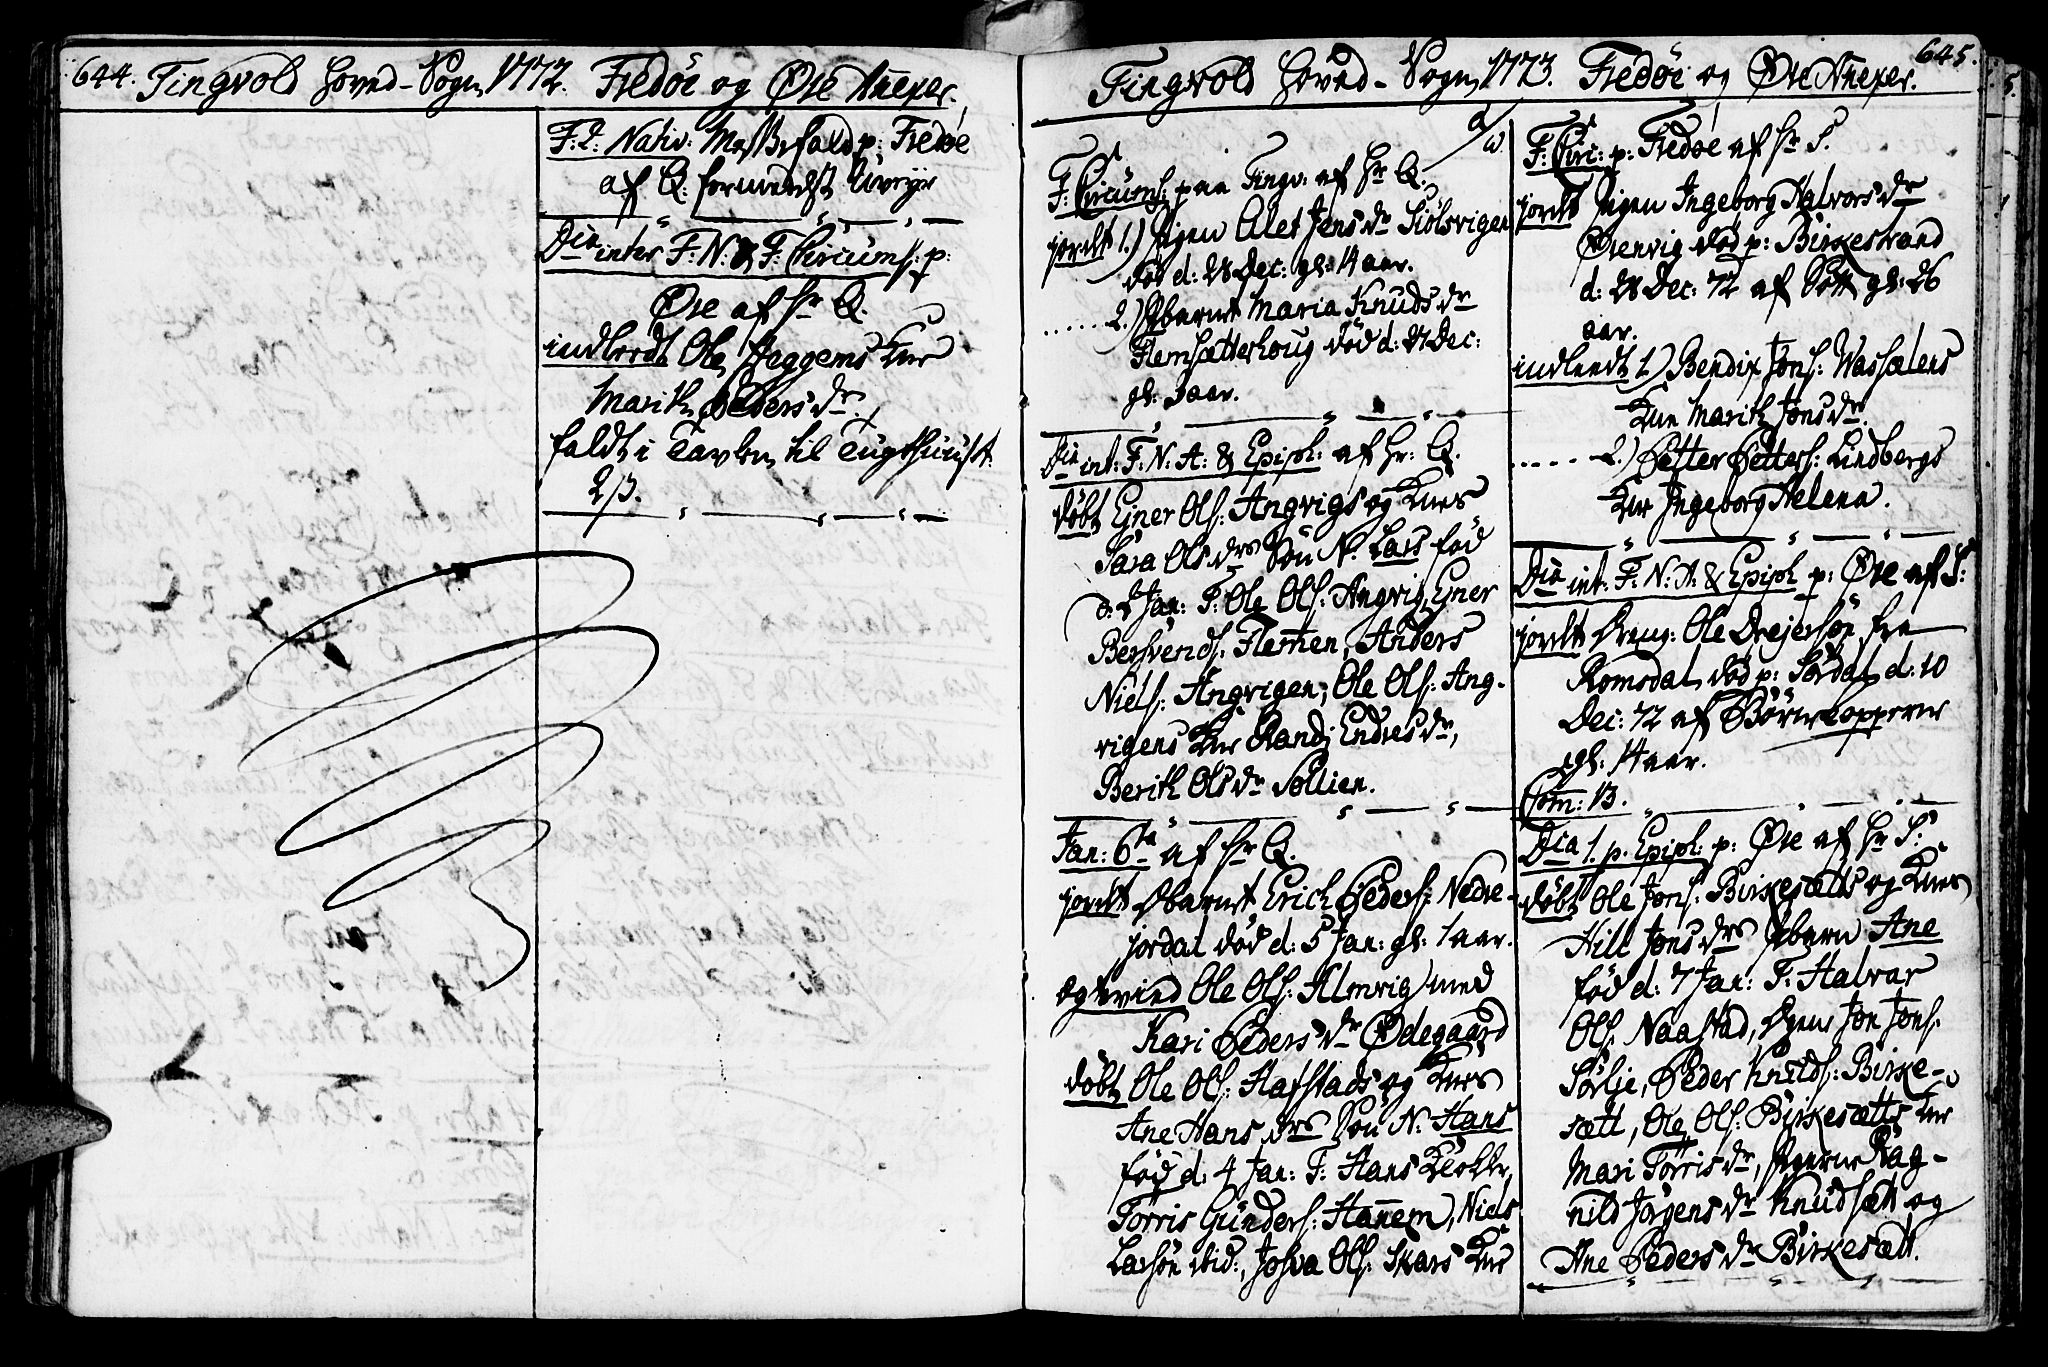 644. Tingvold Hoved-Sogn 1772. Fredøe og Øre Anexer.
F: 2. Nativ: Messefald p: Fredøe
af Q: formedelst Uveyr
Dca inter F: N: & F: Circums: p:
Øre af Hr Q.
indleedt Ole Heggems Kne
Marith Peders dr.
faldt i Tavlen til Tugthuuset
2 ß.
Tingvold Hoved-Sogn 1773. Fredøe og Øre Anexer.
645.
F: Circums: paa Tingv: af Hr Q:
jordt 1.) Pigen Alet Jens dr Siölsvigen
död d: 28 Dec: gl: 14 aar.
..... 2.) Pbarnet Maria Knuds dr
Flemsætterhoug död d: 27 Dec:
gl: 3 aar.
Dca int: F: N: A: & Epiph: af Hr: Q.
döbt Ejner Ols: Angvigs og Knes
Sara Ols drs Sön N. Lars föd
d: 2 Jan: F: Ole Ols: Angvig, Ejner
Bersvends: Flemen, Anders
Niels: Angvigen, Ole Ols: Ang-
vigens Kne Randi Endres dr,
Berith Ols dr Sollien.
Jan: 6ta af Hr Q.
jordt Dbarnet Erich Peders: Nedre-
jordal död d: 5 Jan: gl: 1 aar.
Ægtevied Ole Ols: Almvig med
Kari Peders dr Ødegaard
döbt Ole Ols: Hafstads og Knes
Ane Hans drs Sön N: Hans
föd d: 4 Jan: F: Hans Klokker,
Torris Gunders: Hanem, Niels
Larsön ibid:, Joshva Ols: Skars Kne
F: Circ: p: Fredøe af Hr S.
jordt Pigen Ingeborg Halvors dr
Ørenvig död p: Birkestrand
d: 28 Dec: 72 af Sott gl: 26
aar.
indleedt 1.) Bendix Jons: Wassælens
Kne Marith Jons dr.
..... 2.) Petter Petters: Lindbergs
Kne Ingeborg Helena.
Dca int: F: N: A: & Epiph p: Øre af S:
jordt Dreng: Ole Drejersön fra
Romsdal död p: Sördal d: 10
Dec: 72 af Börnekopperne
gl: 14 aar.
Com: 13.
Dca 1. p. Epiph: p: Øre af Hr S:
döbt Ole Jons: Birkesætts og Knes
Hill Jons drs Pbarn Ane
föd d: 7 Jan: F: Halvar
Ols: Naastad, Jon Jons:
Sörlje, Peder Knuds: Birke-
sætt, Ole Ols: Birkesætts Kne
Mari Torris dr, Pigerne Rag-
nild Jörgens dr Knudsætt og
Ane Peders dr Birkesætt.